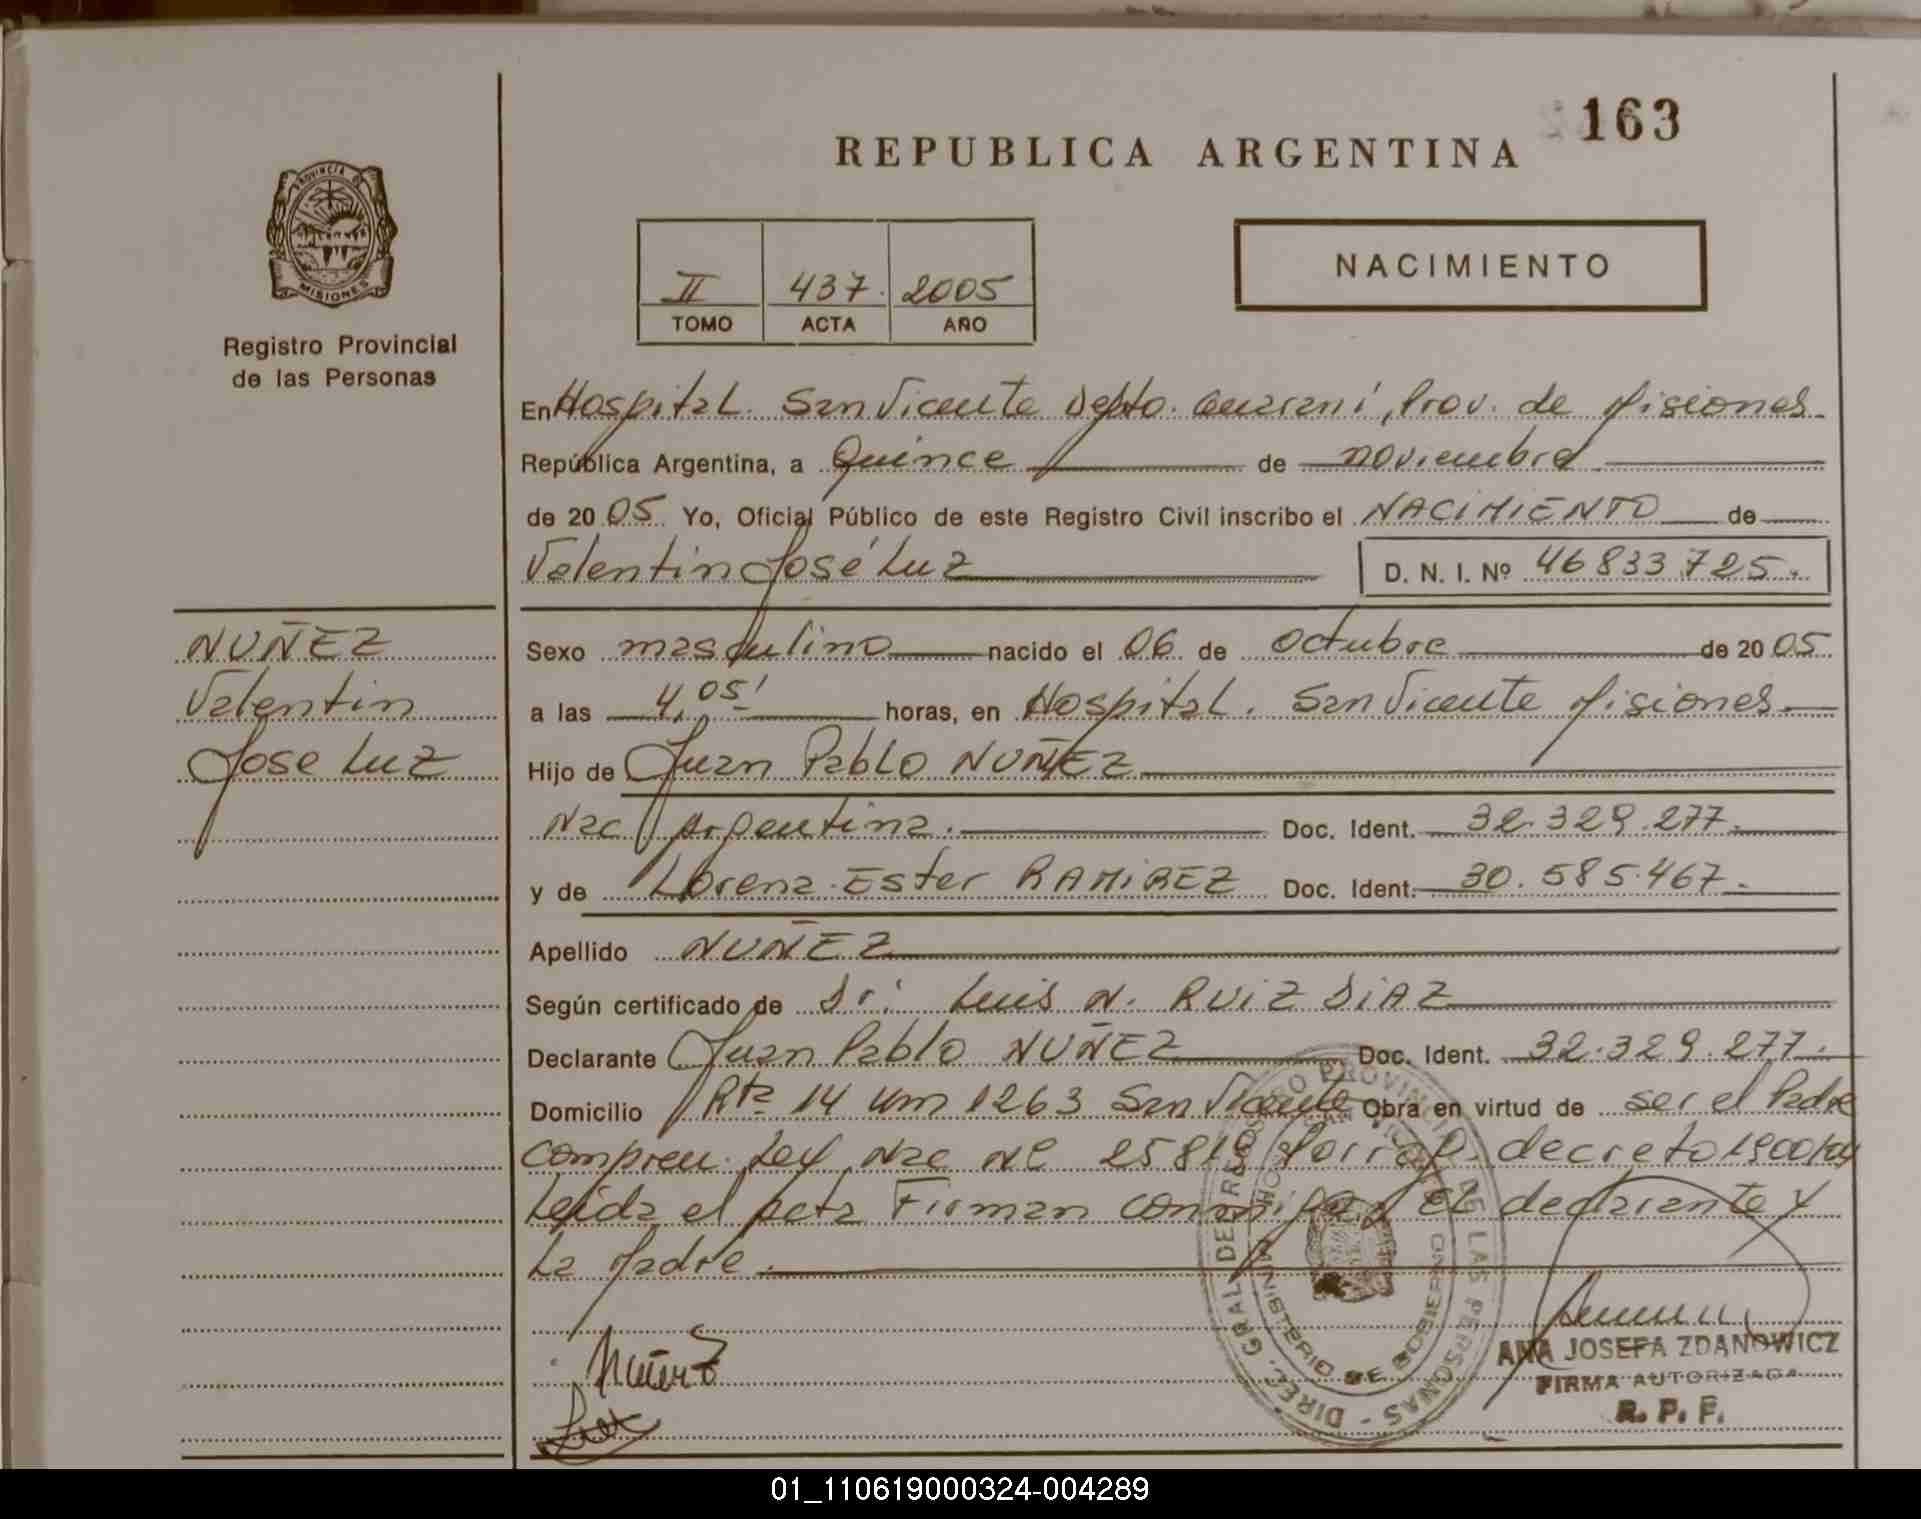 163
REPUBLICA ARGENTINA
PROVINCIA DE
MISIONES
Registro Provincial
de las Personas
II 437 2005
TOMO ACTA AÑO
NACIMIENTO
En Hospital San Vicente Depto. Guaraní, Prov. de Misiones
República Argentina, a Quince de noviembre
de 20 05 Yo, Oficial Público de este Registro Civil inscribo el NACIMIENTO de
Valentin José Luz D. N. I. Nº 46833725.
NUÑEZ
Valentin
Jose Luz
Sexo masculino nacido el 06 de octubre de 20 05
a las 4,05' horas, en Hospital. San Vicente Misiones
Hijo de Juan Pablo NUÑEZ
Nac Argentina. Doc. Ident. 32.329.277.
y de Lorena Ester RAMIREZ Doc. Ident. 30.585.467.
Apellido NUÑEZ
Según certificado de Dr: Luis N. RUIZ DIAZ
Declarante Juan Pablo NUÑEZ Doc. Ident. 32.329.277.
Domicilio Rta 14 Km 1263 San Vicente Obra en virtud de ser el Padre
Compren. Ley Nac Nº 25819 decreto 1900/04
Leida el acta Firman conmigo el declarante y
La Madre.
Nuñez
DIREC. GRAL. DE REGISTRO PROVINCIAL DE LAS PERSONAS
MINISTERIO DE GOBIERNO
ANA JOSEFA ZDANOWICZ
FIRMA AUTORIZADA
R. P. P.
01_110619000324-004289